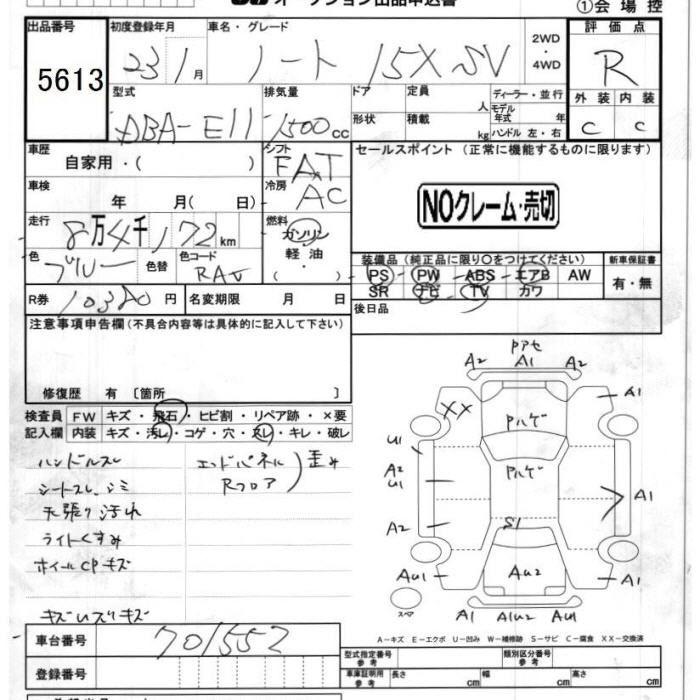 オークション出品申込書 ①会場控
出品番号 初度登録年月 車名・グレード 2WD ・4WD 評価点
5613 23 1月 ノート 15X SV R
型式 排気量 ドア 定員 人 ディーラー・並行 外装 内装
ABA-E11 1500cc 形状 積載 kg モデル年式 年 ハンドル 左・右 C C
車歴 自家用・( ) シフト FAT セールスポイント (正常に機能するものに限ります)
車検 年 月( 日) 冷房 AC NOクレーム・売切
走行 8万4千172km 燃料 ガソリン
色 ブルー 色替 色コード RAV 軽油・( ) 装備品(純正品に限り○をつけてください) 新車保証書
PS PW ABS エアB AW 有・無
SR ナビ TV カワ
R券 10380円 名変期限 月 日 後日品
注意事項申告欄(不具合内容等は具体的に記入して下さい)
修復歴 有 〔箇所 〕
検査員 FW キズ・飛石・ヒビ割・リペア跡・×要
記入欄 内装 キズ・汚レ・コゲ・穴・スレ・キレ・破レ
ハンドルスレ エンドパネル 歪み
シートスレ、シミ Rフロア
天張り汚れ
ライトくすみ
ホイールCPキズ
キズ
車台番号 701552
登録番号
Fアセ
A2 A1 A2
XX Fハゲ A1
U1 Rハゲ
A2
U1 A1
A2 S1
AU1 AU2 A1
スペア A1 A1U2 AU1
A-キズ E-エクボ U-凹み W-補修跡 S-サビ C-腐食 XX-交換済
型式指定番号 参考 類別区分番号 参考
車庫証明用 参考 長さ cm 幅 cm 高さ cm